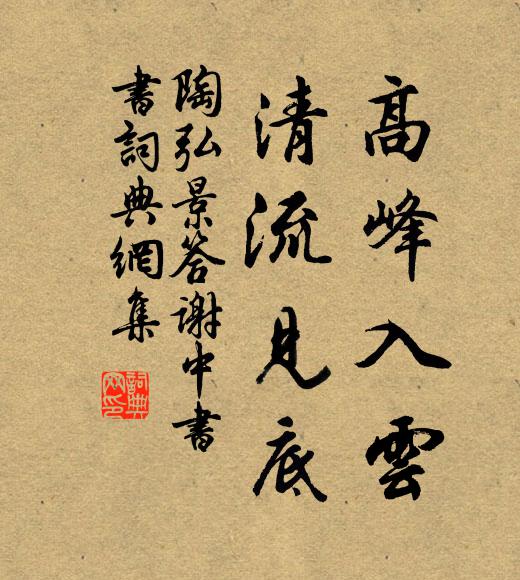 高峰入雲
清流見底
陶弘景答謝中書
書詞典網集
詞典網印